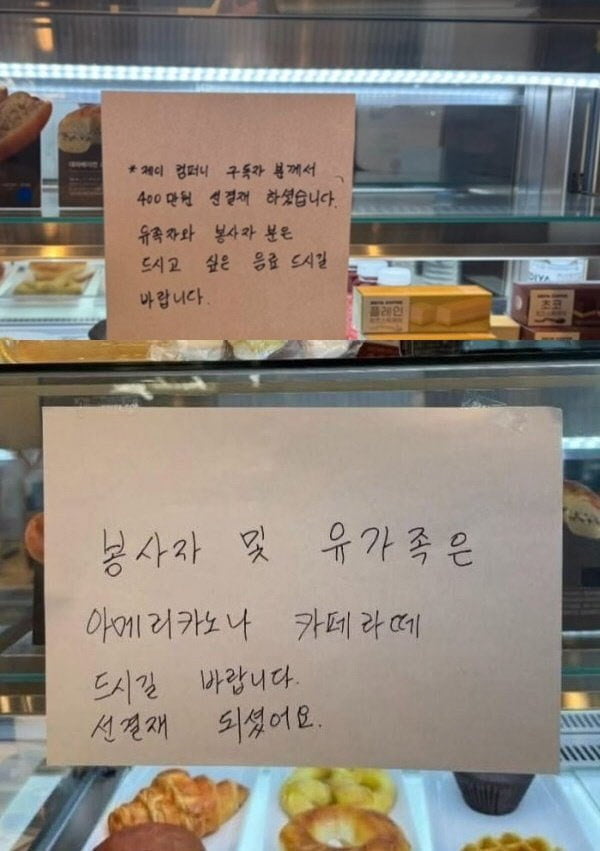 * 제이 컴퍼니 구독자 분께서
400만원 선결재 하셨습니다.
유족자와 봉사자 분은
드시고 싶은 음료 드시길
바랍니다.
플레인
초코
봉사자 및 유가족은
아메리카노나 카페라떼
드시길 바랍니다.
선결재 되셨어요.